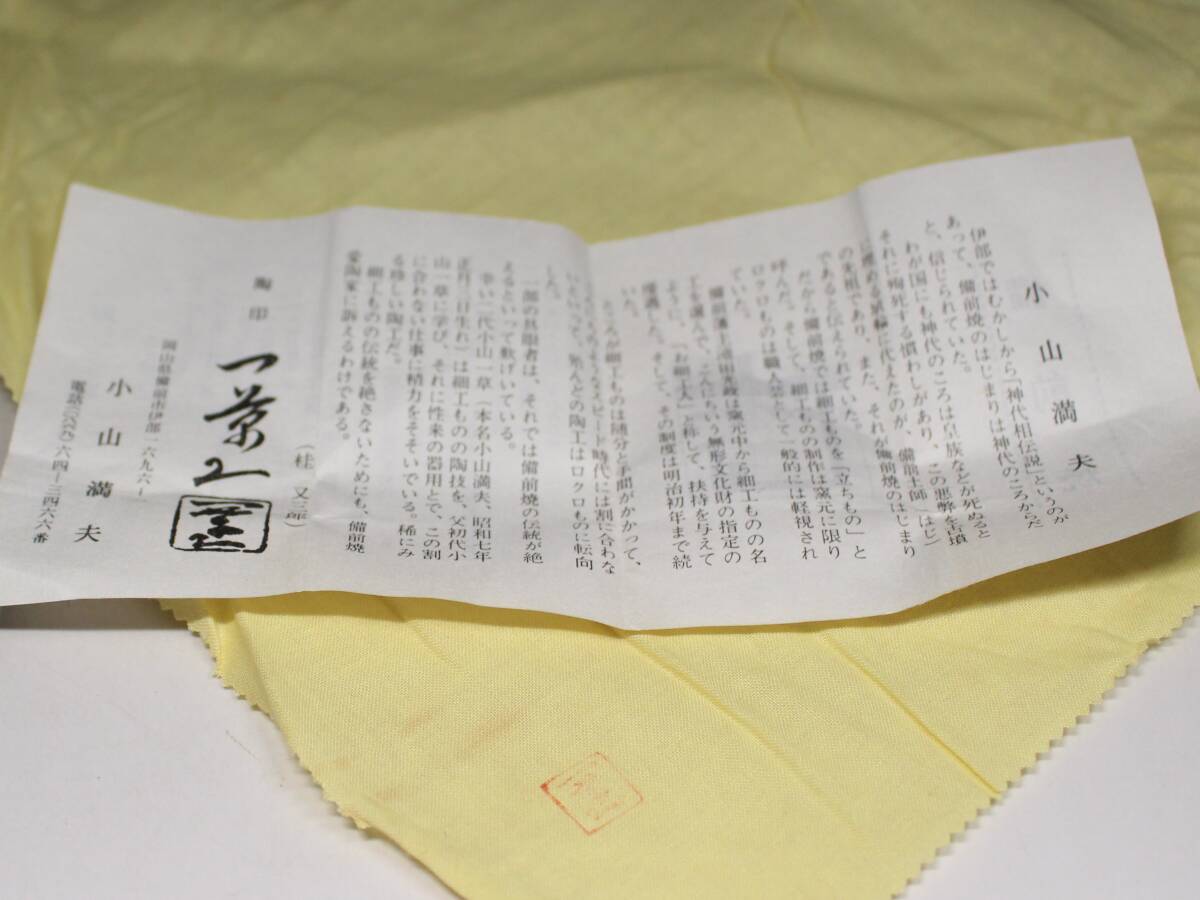 小山満夫
伊部ではむかしから「神代相伝説」というのが
あって、備前焼のはじまりは神代のころからだ
と、信じられていた。
わが国にも神代のころは皇族などが死ぬると
それに殉死する慣わしがあり、この悪弊を古墳
に埋める埴輪に代えたのが、備前土師（はじ）
の先祖であり、また、それが備前焼のはじまり
であると伝えられていた。
だから備前焼では細工ものを「立ちもの」と
呼んだ。そして、細工ものの制作は窯元に限り
ロクロものは職人芸として一般的には軽視され
ていた。
備前藩主池田光政は窯元中から細工ものの名
工を選んで、こんにちいう無形文化財の指定の
ように、「お細工人」と称して、扶持を与えて
優遇した。そして、その制度は明治初年まで続
いた。
ところが細工ものは随分と手間がかかって、
スピード時代には割に合わな
いからといって、殆んどの陶工はロクロものに転向
した。
一部の具眼者は、それでは備前焼の伝統が絶
えるといって歎げいている。
幸い二代小山一草（本名小山満夫、昭和七年
正月三日生れ）は細工ものの陶技を、父初代小
山一草に学び、それに性来の器用とで、この割
に合わない仕事に精力をそそいでいる。稀にみ
る珍しい陶工だ。
細工ものの伝統を絶さないためにも、備前焼
愛陶家に訴えるわけである。
（桂又三郎）
陶印
岡山県備前市伊部一六九六ー
小山満夫
電話〇八六九）六四ー三四六六番